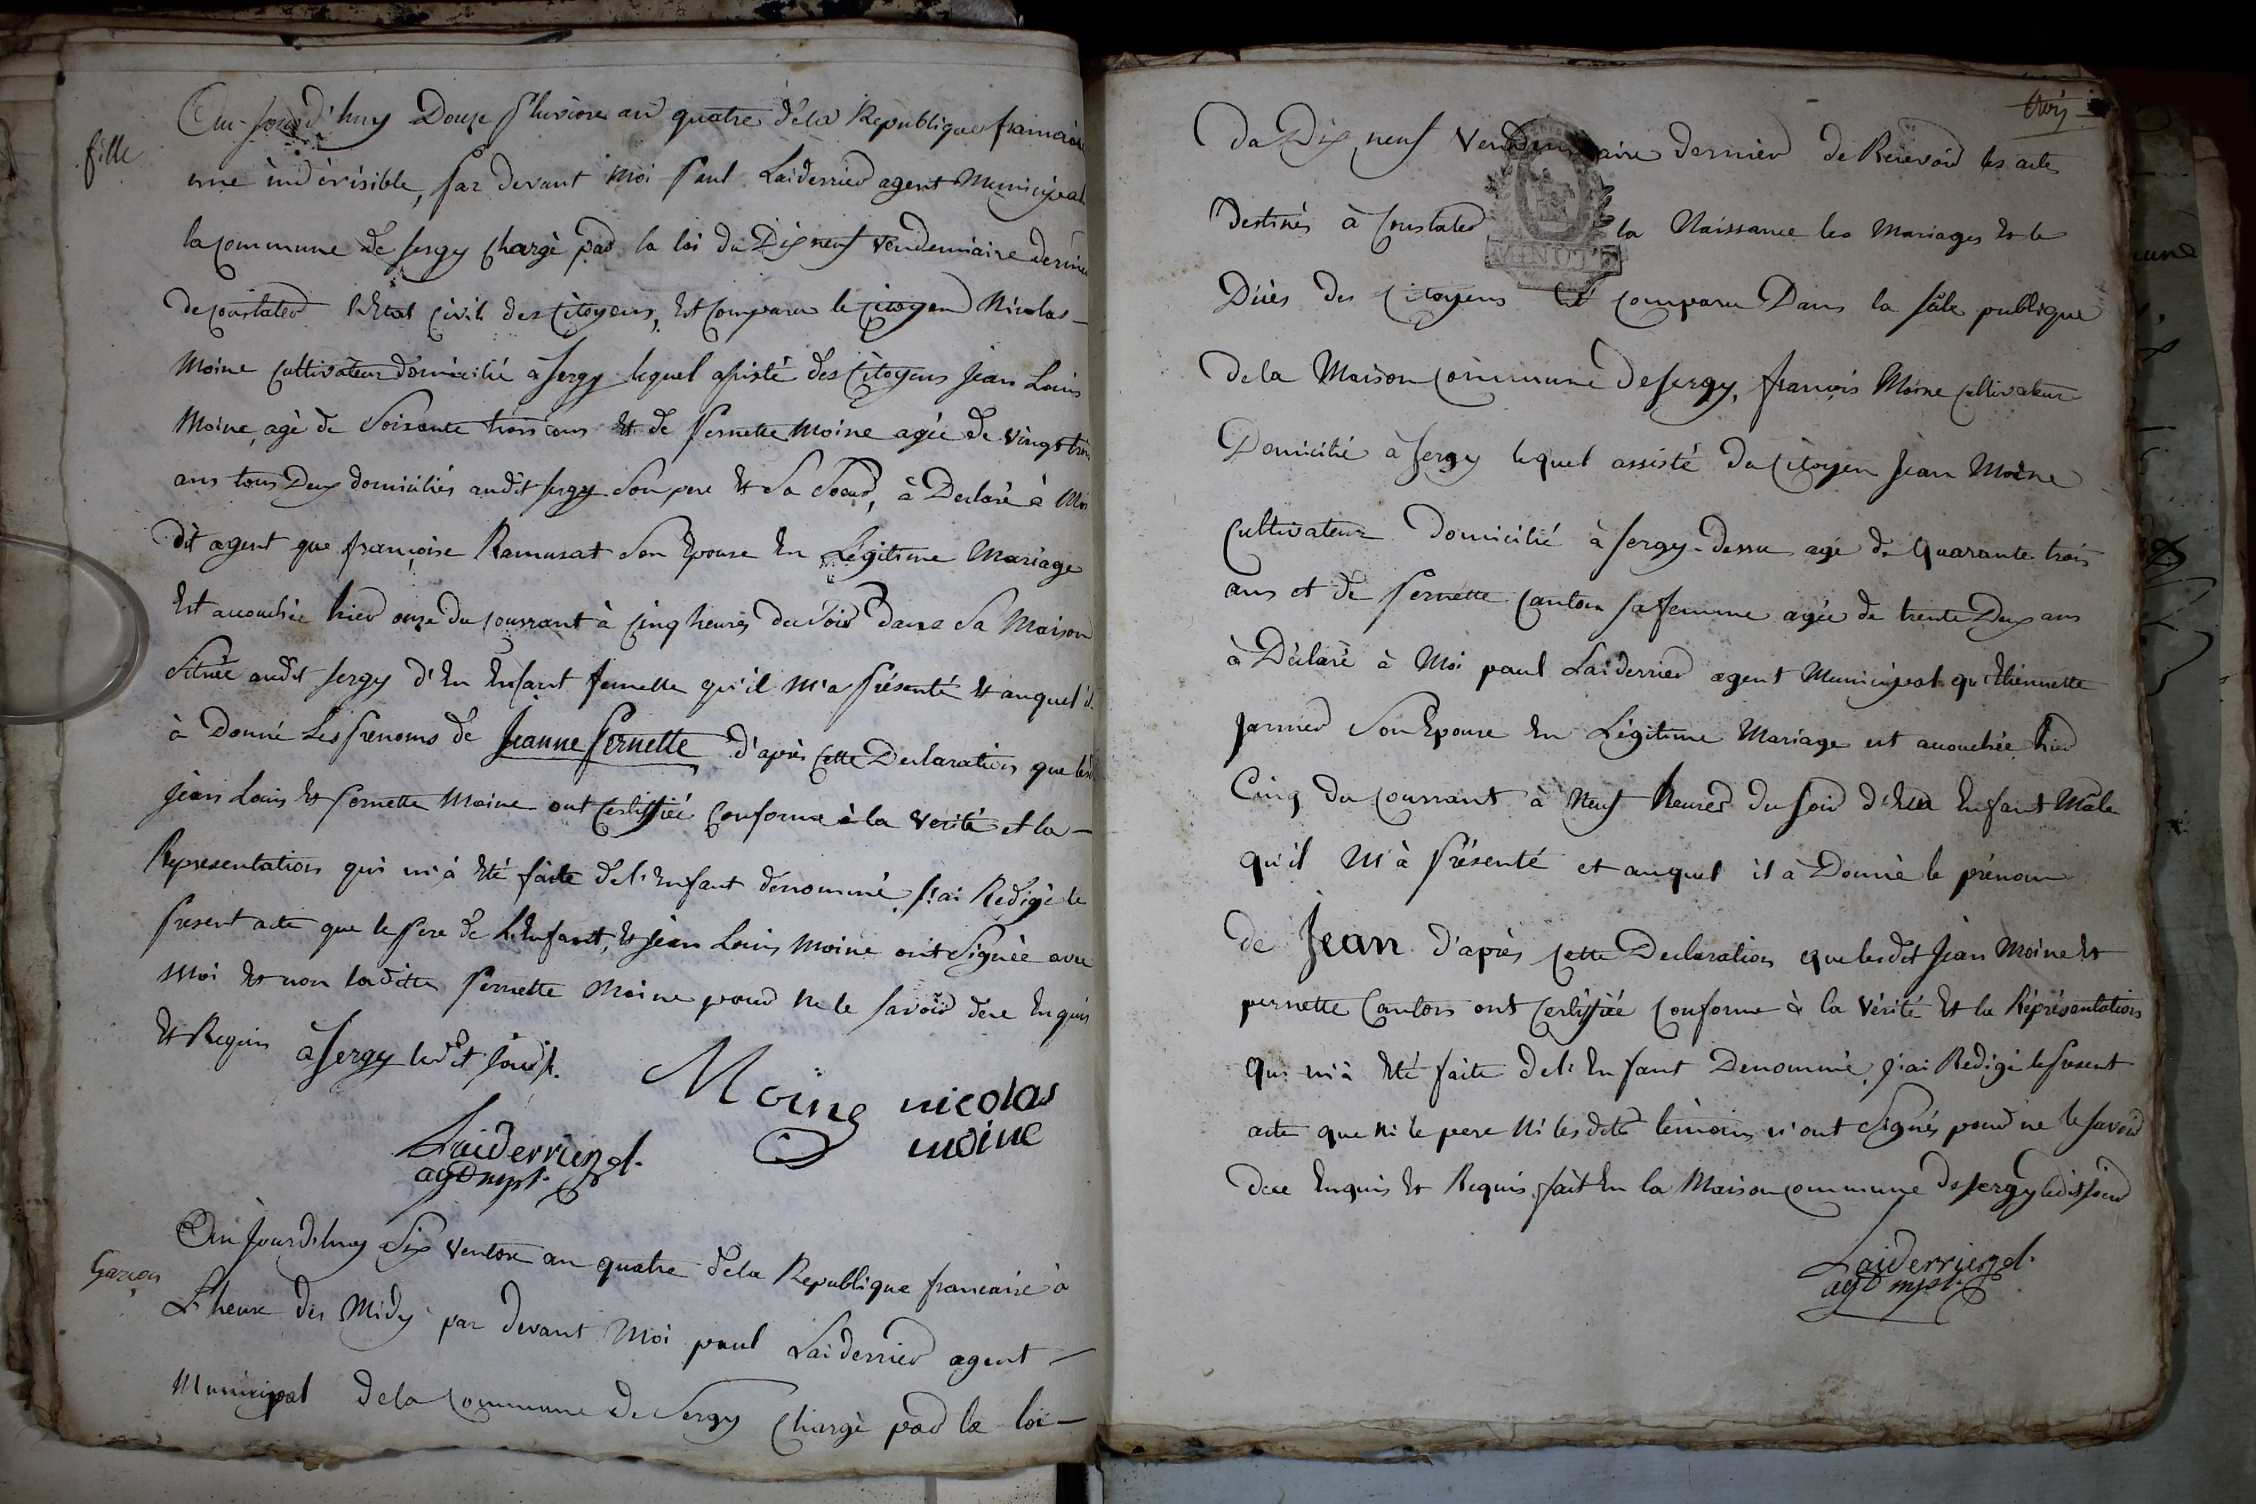 fille
Au-jourd'huy Douze Pluviose an quatre de la Republique francaise
une indivisible, par devant Moi Paul Laiderrier agent Municipal
la commune de Sergy chargé par la loi du Dix neuf vendemiaire dernier
de constater l'Etat civil des citoyens, Est comparu le citoyen Nicolas -
Moine cultivateur domicilié à Sergy lequel assisté des citoyens Jean Louis
Moine, agé de soixante trois ans Et de Pernette Moine agée de vingt trois
ans tous Deux domiciliés audit Sergy son pere Et sa soeur, à Declaré à Moi
dit agent que françoise Ramusat son Epouse En Légitime Mariage
Est accouchée hier onze du courrant à cinq heures du soir dans sa Maison
située audit Sergy d'En Enfant femelle qu'il m'a présenté Et auquel il
à Donné les prenoms de Jeanne Pernette d'après cette Declaration que les
Jean Louis Et Pernette Moine ont certiffiée conforme à la verité et la -
Representation qui m'à Eté faite de l'Enfant denommé, j'ai Redigé le
present acte que le Pere de L'Enfant, Et jean Louis Moine ont signée avec
Moi Et non ladite Pernette Moine pour ne le savoir dece Enquis
Et Requis à Sergy ledit jour
Moine nicolas
moine
Laiderrier
agt mpl.
Garçon
Au jourd'huy Six Ventose an quatre de la Republique francaise à
L'heure des Midy par devant Moi paul Laiderrier agent -
Municipal de la commune de Sergy chargé par la loi -
du Dix neuf Vendemiaire dernier de Recevoir les acte
Destinés à constater la Naissance les Mariages Et le
Décès des citoyens Est comparu Dans la sale publique
MINUTE
de la Maison commune de Sergy, françois Moine cultivateur
Domicilié à Sergy lequel assisté du citoyen Jean Moine
cultivateur Domicilié à Sergy-dessu agé de quarante trois
ans et de Pernette canton sa femme agée de trente Deux ans
à Déclaré à Moi paul Laiderrier agent Municipal qu'Etiennette
Jarnier son Epouse En Légitime Mariage est accouchée hier
Cinq du courrant à Neuf heures du soir d'Un Enfant Mâle
qu'il M'à Présenté et auquel il à Donné le prénom
de Jean d'après cette Declaration que lesdit Jean Moine Et
pernette Canton ont certiffiée conforme à la vérité Et la Réprésentation
qui m'à Eté faite de l'Enfant Denommé, j'ai Redigé le present
acte que Ni le pere Ni lesdits témoins n'ont signés pour ne le savoir
dece Enquis Et Requis, fait En la Maison commune de Sergy ledit jour
Laiderrier
agt mpl.